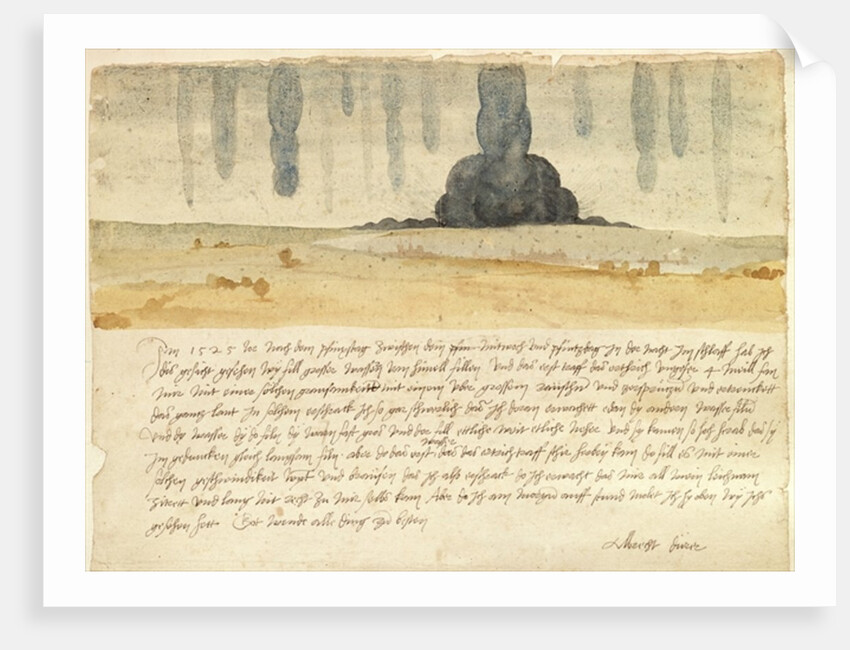 Im 1525 Jor noch dem pfinxstag zwischen dem mitwoch und pfintzdag in der nacht im schlaff hab ich
dis gesicht gesehen wy fill grosser wassern vom himell fillen Und das erst traff das erthrich ungefer 4 meill fan
mir mit einer solchen grausamkeitt mit einem uber grossem raüschn und zersprützn und ertrenckett
das gantz lant In solchem erschrack ich so gar schwerlich das ich doran erwachett edan dy andern wasser filn
Und dy wasser dy do filn dy warn fast gros und der fill ettliche weit etliche neher und sy kamen so hoch herab das sy
im gedancken gleich langsam filn aber do das erst wasser das das ertrich traff schir herbey kam do fill es mit einer
solchen geschwindikeit wynt und braüsen das ich also erschrack do ich erwacht das mir all mein leichnam
zitrett und lang nit recht zu mir selbs kam Aber do ich am morgen auff stund molet ich hy oben wy ichs
gesehen hett Got wende alle ding zu besten
Albrecht dürer